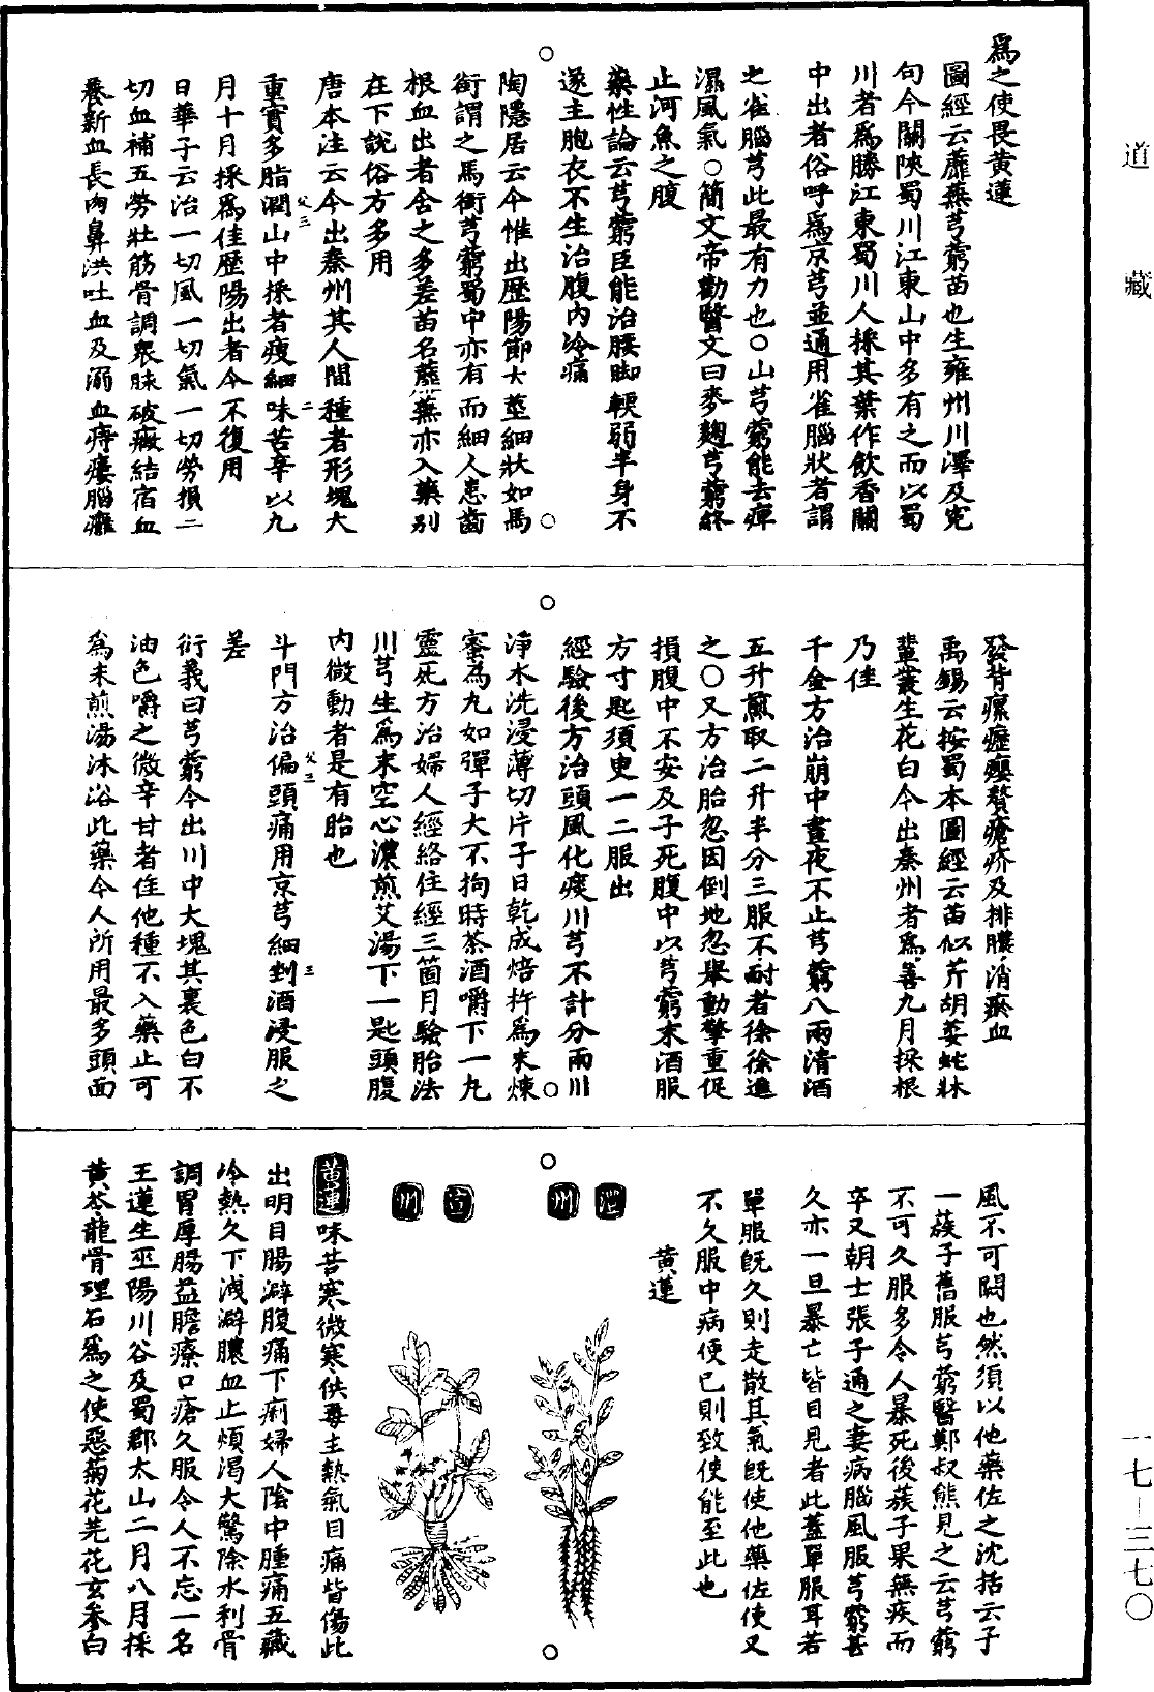 爲之使畏黃連
圖經云蘼蕪芎藭苗也生雍州川澤及冤
句今關陝蜀川江東山中多有之而以蜀
川者爲勝江東蜀川人採其葉作飲香關
中出者俗呼爲京芎並通用雀腦狀者謂
之雀腦芎此最有力也○山芎藭能去痺
濕風氣○簡文帝勸醫文曰麥麴芎藭終
止河魚之腹
藥性論云芎藭臣能治腰脚軟弱半身不
遂主胞衣不生治腹內冷痛
陶隱居云今惟出歷陽節大莖細狀如馬
銜謂之馬銜芎藭蜀中亦有而細人患齒
根血出者含之多差苗名蘼蕪亦入藥別
在下說俗方多用
唐本注云今出秦州其人間種者形塊大
重實多脂潤山中採者瘦細味苦辛以九
月十月採爲佳歷陽出者今不復用
日華子云治一切風一切氣一切勞損二
切血補五勞壯筋骨調衆脉破癥結宿血
養新血長肉鼻洪吐血及溺血痔瘻腦癰
發背瘰癧癭贅瘡疥及排膿消瘀血
禹錫云按蜀本圖經云苗似芹胡荽蛇牀
輩叢生花白今出秦州者爲善九月採根
乃佳
千金方治崩中晝夜不止芎藭八兩清酒
五升煎取二升半分三服不耐者徐徐進
之○又方治胎忽因倒地忽舉動擎重促
損腹中不安及子死腹中以芎藭末酒服
方寸匙須臾一二服出
經驗後方治頭風化痰川芎不計分兩川
淨水洗浸薄切片子日乾成焙杵爲末煉
蜜為丸如彈子大不拘時茶酒嚼下一丸
靈死方治婦人經絡住經三箇月驗胎法
川芎生爲末空心濃煎艾湯下一匙頭腹
內微動者是有胎也
斗門方治偏頭痛用京芎細剉酒浸服之
差
衍義曰芎藭今出川中大塊其裏色白不
油色嚼之微辛甘者佳他種不入藥止可
爲末煎湯沐浴此藥今人所用最多頭面
風不可闕也然須以他藥佐之沈括云子
一蔟子舊服芎藭醫鄭叔熊見之云芎藭
不可久服多令人暴死後蔟子果無疾而
卒又朝士張子通之妻病腦風服芎藭甚
久亦一旦暴亡皆目見者此蓋單服耳若
單服既久則走散其氣既使他藥佐使又
不久服中病便已則致使能至此也
黃連
澧州
宣州
黃連味苦寒微寒无毒主熱氣目痛眥傷此
出明目腸澼腹痛下痢婦人陰中腫痛五藏
冷熱久下洩澼膿血止煩渴大驚除水利骨
調胃厚腸益膽療口瘡久服令人不忘一名
王蓮生巫陽川谷及蜀郡太山二月八月採
黃芩龍骨理石爲之使惡菊花芫花玄參白
道藏
一七－三七〇